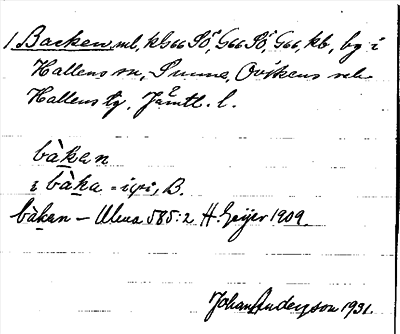 1 Backen ml, kb66 Sö, G66 Sö, G66, kb, by i
Hallens sn, Sunne, Ovikens och
Hallens tg, Jämtl. l.
bàkan
i bàka = i pi, B.
bàkan – Ulma 585:2 H. Geijer 1909.
Johan Anderzson 1931.